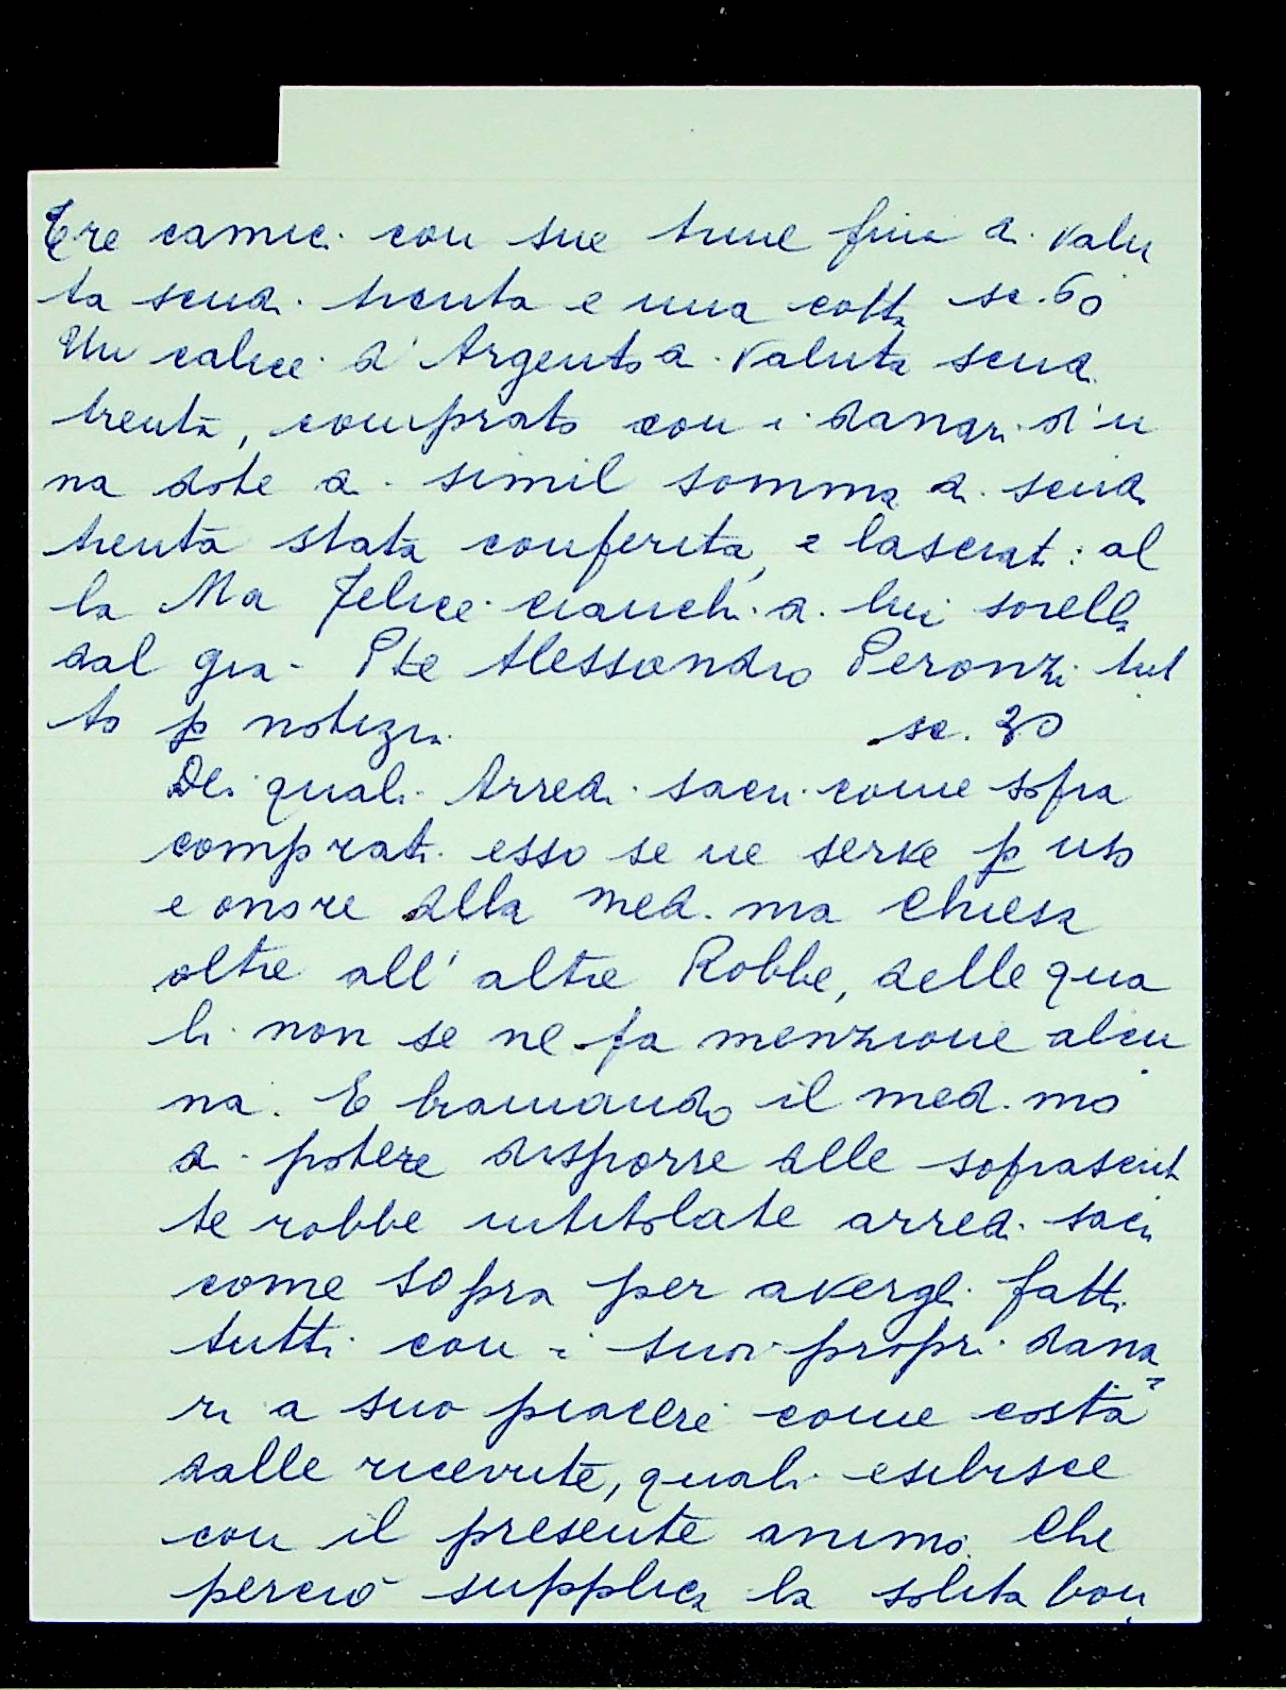 Tre camici con sue trine fini di valu
ta scudi trenta e una cotta sc. 60
Un calice d'Argento di valuta scudi
trenta, comprato con i danari d'u
na dote di simil somma di scudi
trenta stata conferita, e lasciat: al
la Ma Felice cianchi di lui sorella
dal già Pte Alessandro Peronzi tut
to p notizia. sc. 30
Dei quali Arredi sacri come sopra
comprati esso se ne serve p uso
e onore della med.ma Chiesa
oltre all'altre Robbe, delle qua
li non se ne fa menzione alcu
na. E bramando il med.mo
di potere disporre delle soprascrit
te robbe intitolate arredi sacri
come sopra per avergli fatti
tutti con i suoi propri dana=
ri a suo piacere come costa
dalle ricevute, quali esibisce
con il presente animo. Che
perciò supplica la solita bon